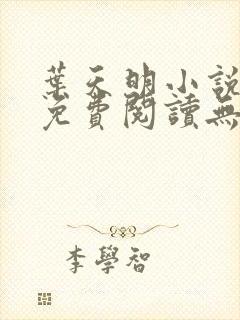 葉天明小說
免費閱讀無
李學智